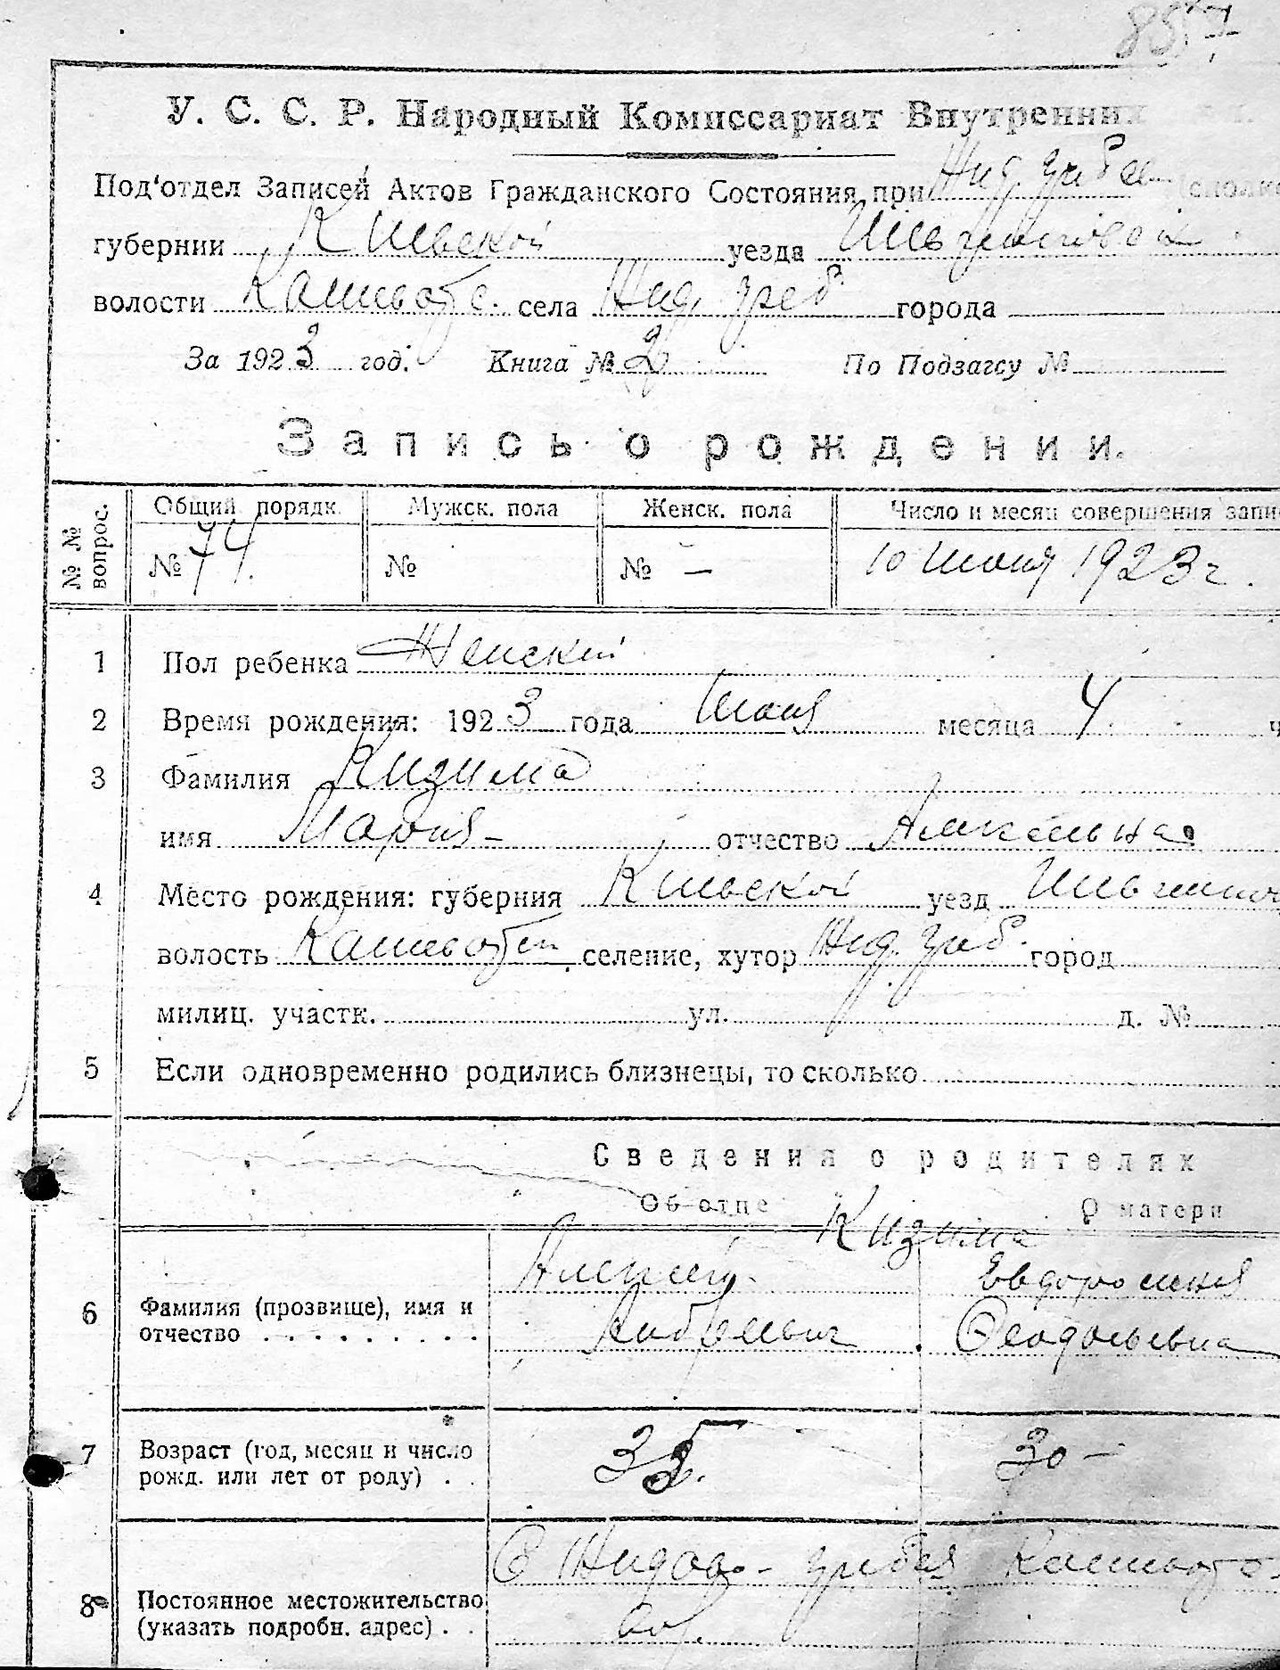 У. С. С. Р. Народный Комиссариат Внутренних
Под'отдел Записей Актов Гражданского Состояния при Жид. греб
губернии Киевской уезда
волости села Жид. греб города
За 1923 год. Книга № 2 По Подзагсу №
Запись о рождении.
№№ вопрос. Общий порядк. Мужск. пола Женск. пола Число и месяц совершения запи
№ 74. № № — 10 Июня 1923 г.
1 Пол ребенка Женский
2 Время рождения: 1923 года Июня месяца 4 ч
3 Фамилия Кизима
имя Мария отчество
4 Место рождения: губерния Киевской уезд
волость селение, хутор Жид. греб. город
милиц. участк. ул. д. №
5 Если одновременно родились близнецы, то сколько
Сведения о родителях
Об отце О матери
Кизима
Алексей Евдокия
6 Фамилия (прозвище), имя и
отчество Андреевич Феодосьевна
7 Возраст (год, месяц и число 35. 30 —
рожд. или лет от роду)
С Жидов-гребля
8 Постоянное местожительство
(указать подробн. адрес)